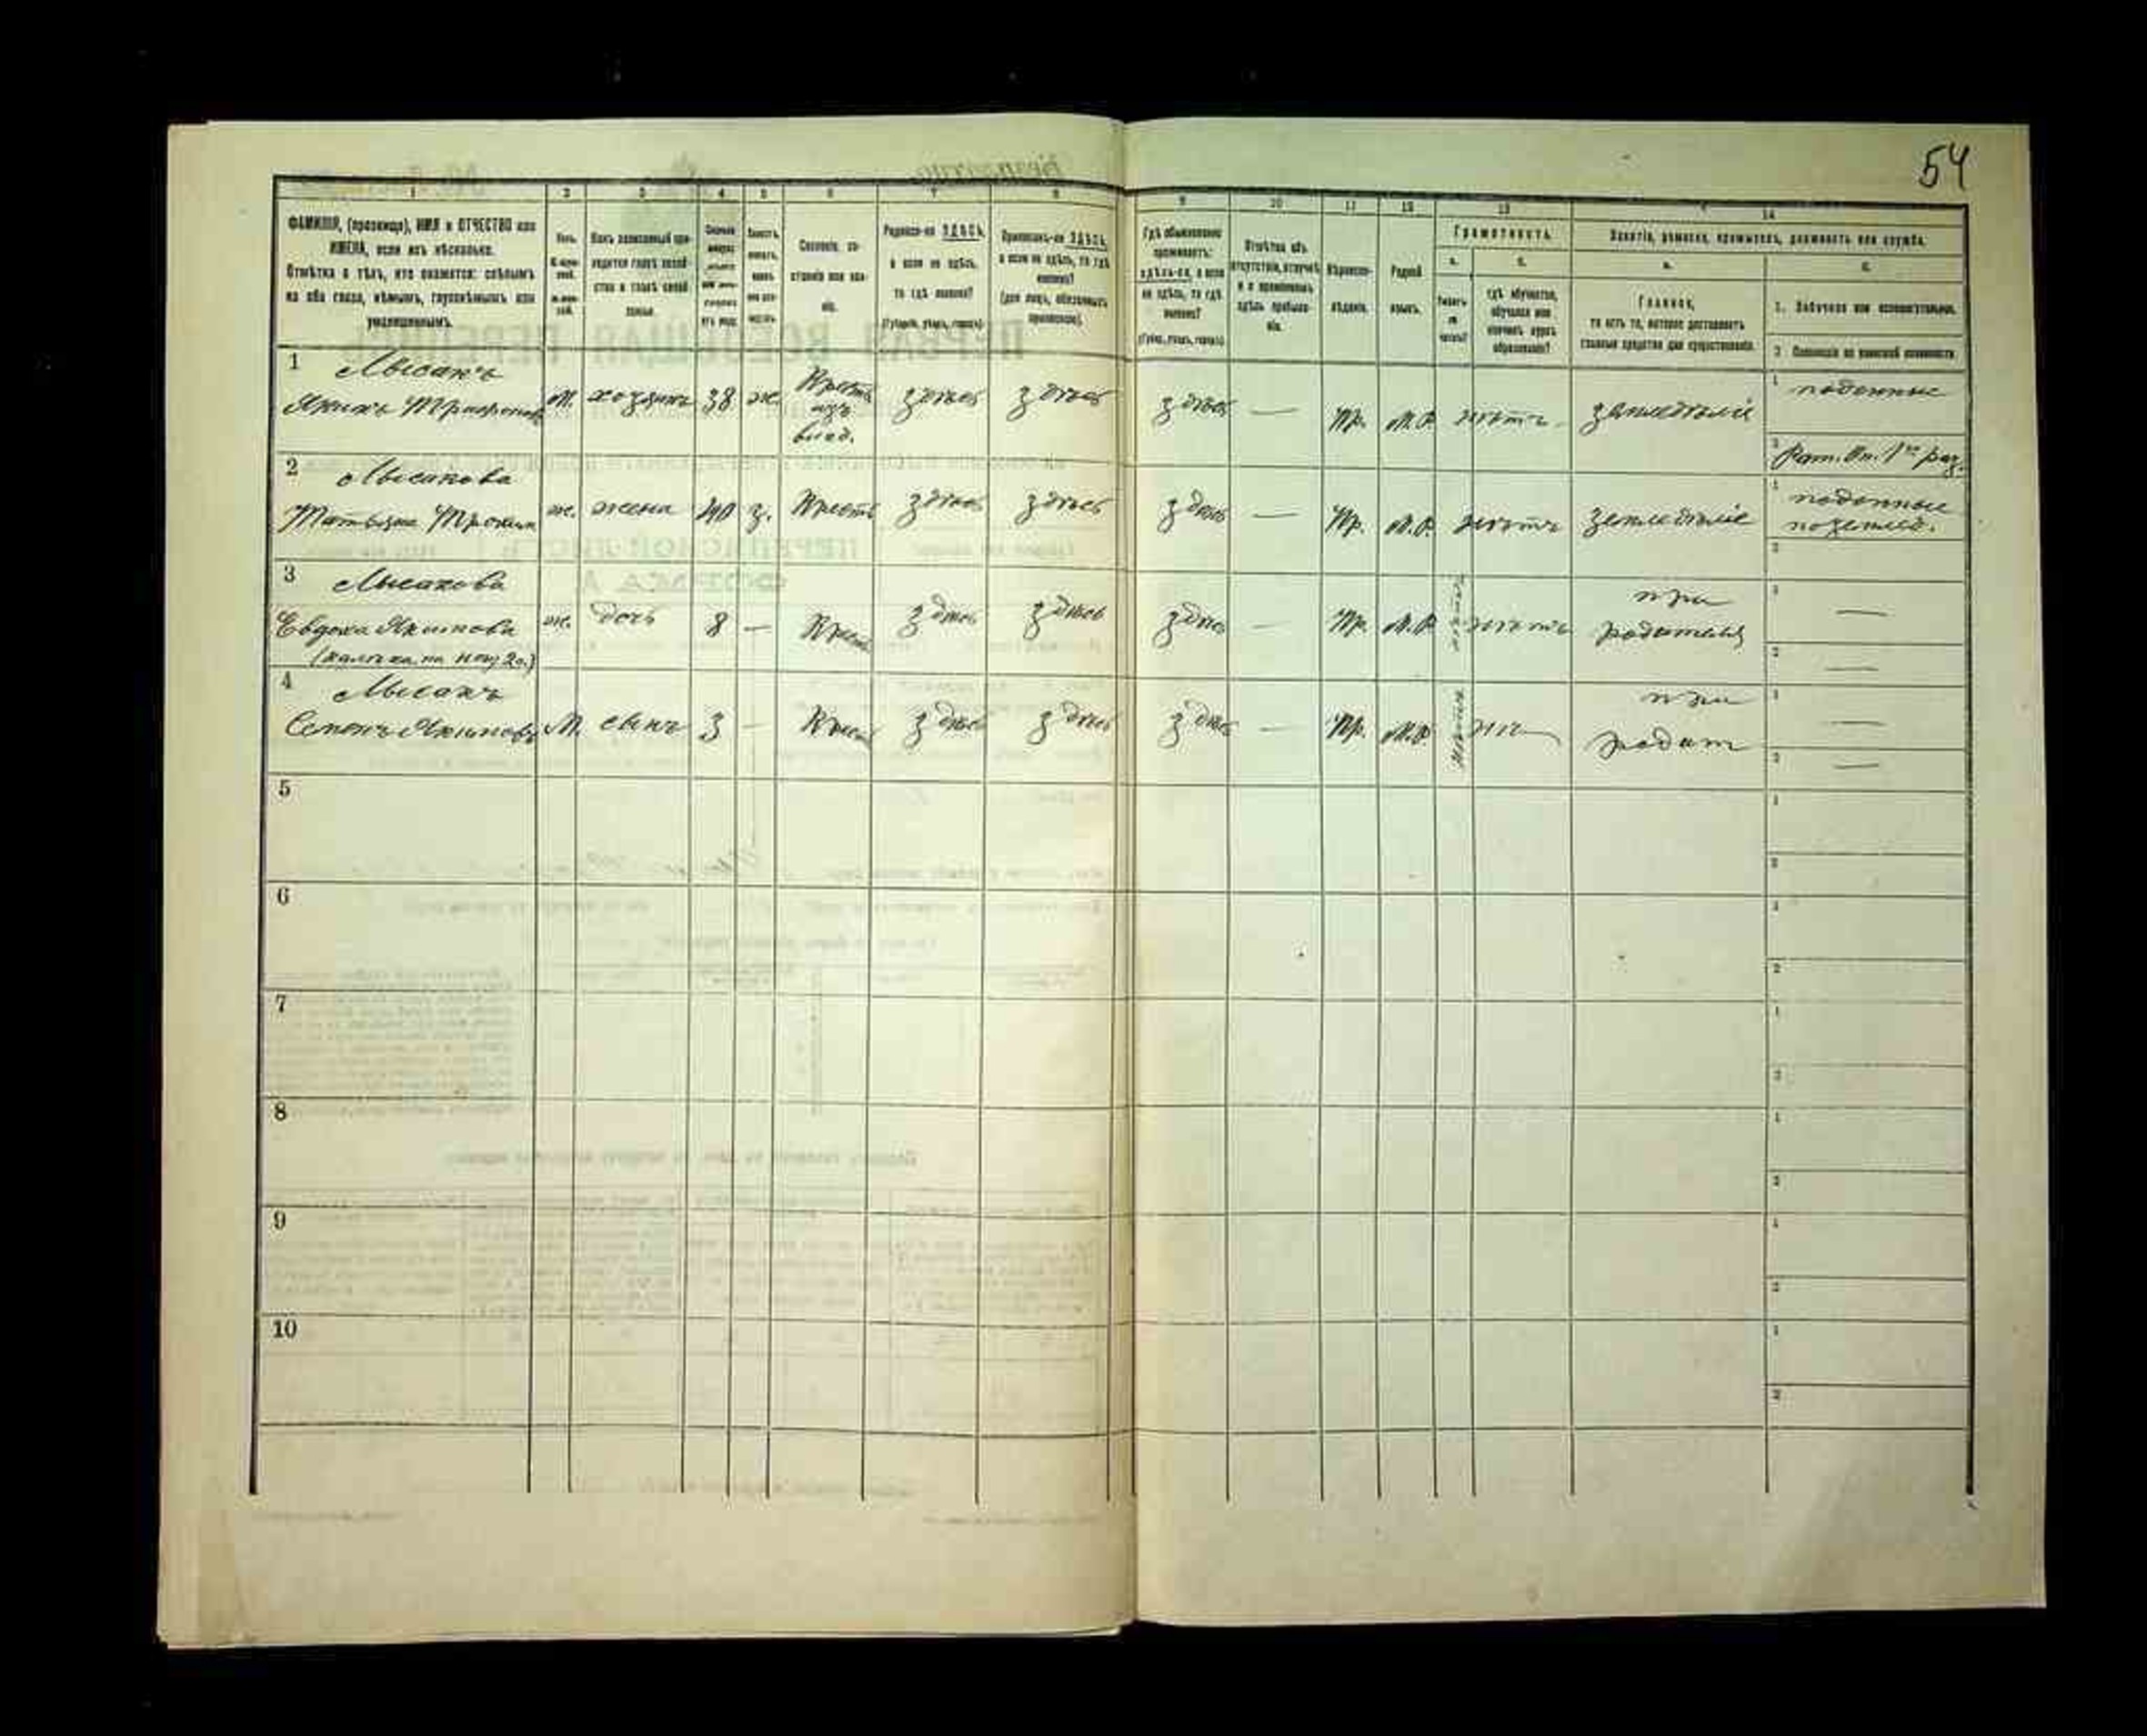 54
1 2 3 4 5 6 7 8 9 10 11 12 13 14
ФАМИЛІЯ, (прозвище), ИМЯ и ОТЧЕСТВО или
ИМЕНА, если ихъ нѣсколько.
Отмѣтка о тѣхъ, кто окажется: слѣпымъ
на оба глаза, нѣмымъ, глухонѣмымъ или
умалишеннымъ.
Полъ.
Какъ записанный при-
ходится главѣ хозяй-
ства и главѣ своей
семьи.
Сословіе, со-
стояніе или зва-
ніе.
Родился-ли ЗДѢСЬ,
а если не здѣсь,
то гдѣ именно?
(Губернія, уѣздъ, городъ).
Приписанъ-ли ЗДѢСЬ,
а если не здѣсь, то гдѣ
именно?
(для лицъ, обязанныхъ
припискою).
Гдѣ обыкновенно
проживаетъ:
здѣсь-ли, а если
не здѣсь, то гдѣ
именно?
(Губер., уѣздъ, городъ).
Отмѣтка объ
отсутствіи, отлучкѣ
и о временномъ
здѣсь пребыва-
ніи.
Вѣроиспо-
вѣданіе.
Родной
языкъ.
Грамотность.
а. б.
Умѣетъ
ли
читать?
гдѣ обучается,
обучался или
кончилъ курсъ
образованія?
Занятіе, ремесло, промыселъ, должность или служба.
а. б.
Главное,
то есть то, которое доставляетъ
главныя средства для существованія.
1. Побочное или вспомогательное.
2. Положеніе по воинской повинности.
1 Лысакъ
Якимъ Трифонов м. хозяинъ 38 ж. Крест. здѣсь здѣсь здѣсь — Пр. М.Р. нѣтъ земледѣліе 1 поденные
изъ
влад.
2 Рат. Оп. 1го раз.
2 Лысакова
Татьяна Трохим ж. жена 40 з. Крест здѣсь здѣсь здѣсь — Пр. М.Р. нѣтъ земледѣліе 1 поденные
2
3 Лысакова
Евдоха Якимова ж. дочь 8 — Крест здѣсь здѣсь здѣсь — Пр. М.Р. нѣтъ при 1 —
родителяхъ 2 —
4 Лысакъ
Семенъ Якимовъ М. сынъ 3 — Крест здѣсь здѣсь здѣсь — Пр. М.Р. при 1 —
родит 2 —
5 1
2
6 1
2
7 1
2
8 1
2
9 1
2
10 1
2